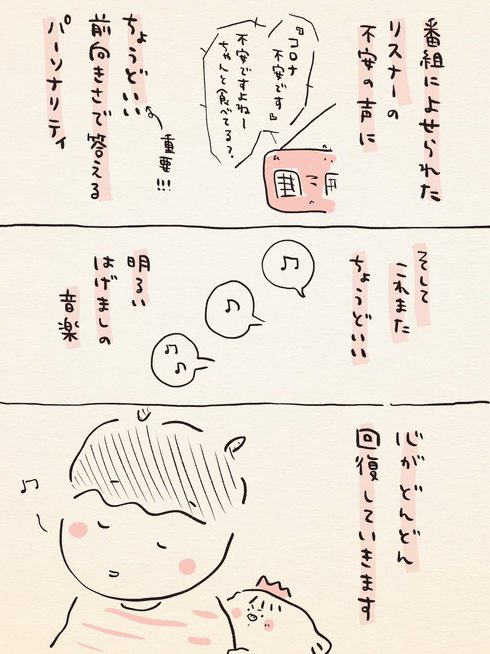 番組によせられた
リスナーの
不安の声に
『コロナ
不安です』
不安ですよねー
ちゃんと食べてる?
ちょうどいい
重要!!!
前向きさで答える
パーソナリティ
そして
これまた
ちょうどいい
明るい
はげましの
音楽
心がどんどん
回復していきます